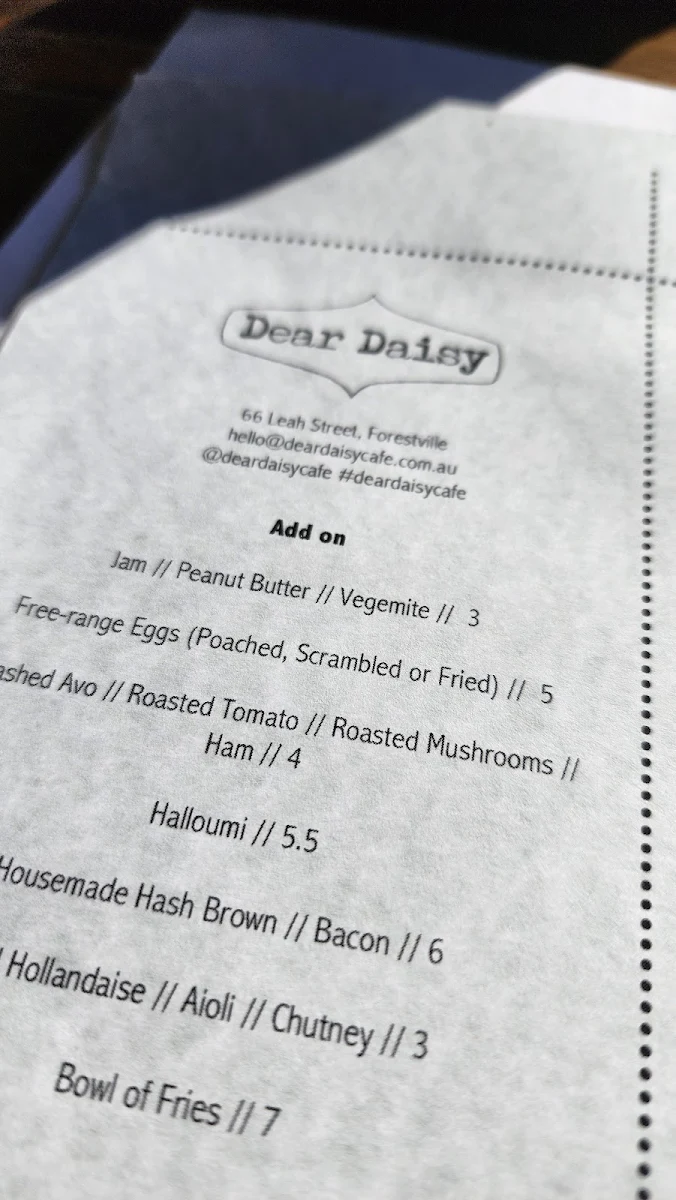 Dear Daisy
66 Leah Street, Forestville
hello@deardaisycafe.com.au
@deardaisycafe #deardaisycafe
Add on
Jam // Peanut Butter // Vegemite // 3
Free-range Eggs (Poached, Scrambled or Fried) // 5
Avo // Roasted Tomato // Roasted Mushrooms //
Ham // 4
Halloumi // 5.5
Housemade Hash Brown // Bacon // 6
/ Hollandaise // Aioli // Chutney // 3
Bowl of Fries // 7